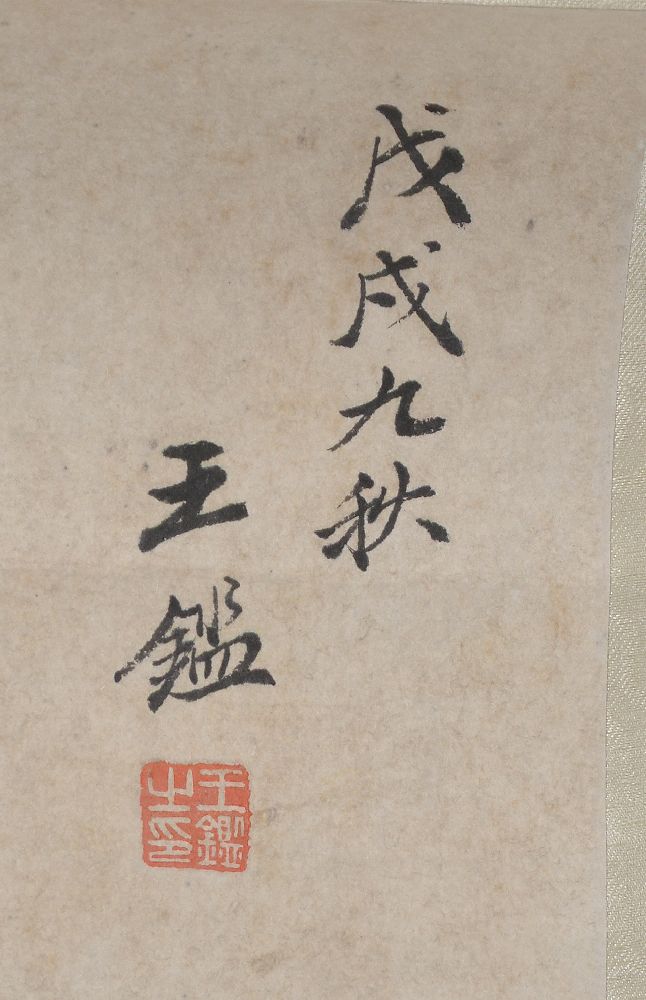 戊戌九秋
王鑑
王鑑之印